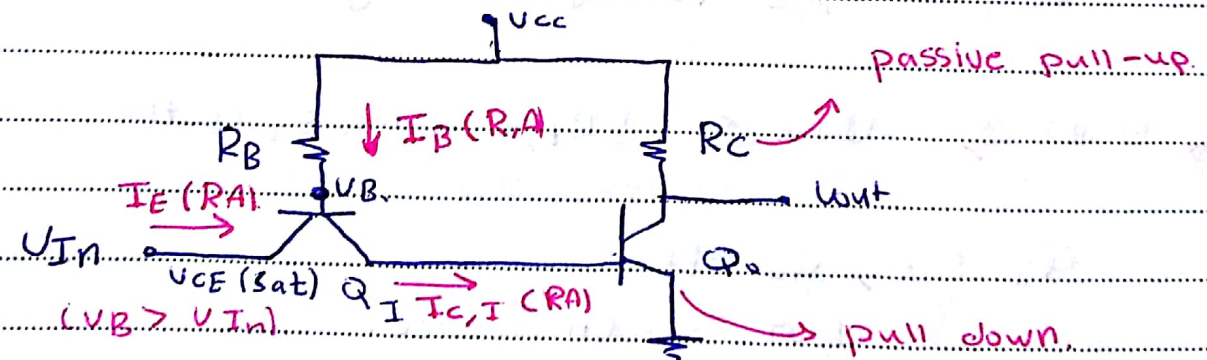 VCC
passive pull-up
RB
IB (RA)
RC
IE (RA)
VB
Vout
VIn
VCE (Sat)
QI
IC,I (RA)
Qo
(VB > VIn)
pull down